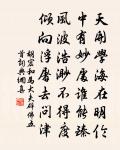 天開學海在明伦
中有妙處誰能臻
風波浩渺不得度
傾向浮屠去問津
胡宏和馬大夫辟佛五
首詞典網熹